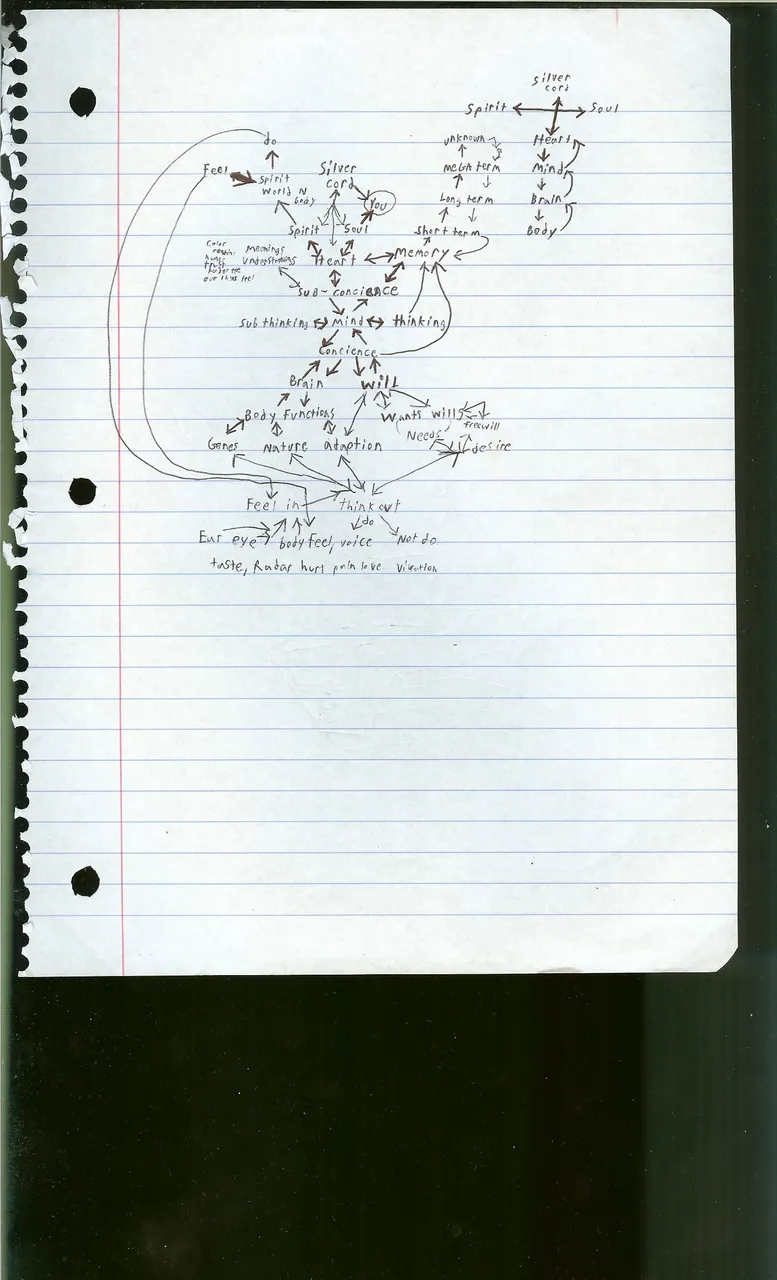 Silver
cord
Spirit Soul
do unknown Heart
Feel Spirit Silver Mega term Mind
World N cord
body You Long term Brain
Spirit Soul Short term Body
Color
Meanings
Understandings Heart Memory
trust
Sub-concience
Sub thinking Mind thinking
Concience
Brain Will
Body Functions Wants will
freewill
Needs
Genes Nature adaption desire
Feel in think out
do
Ear eye body feel, voice Not do
taste, Radar hurt pain love Vibration